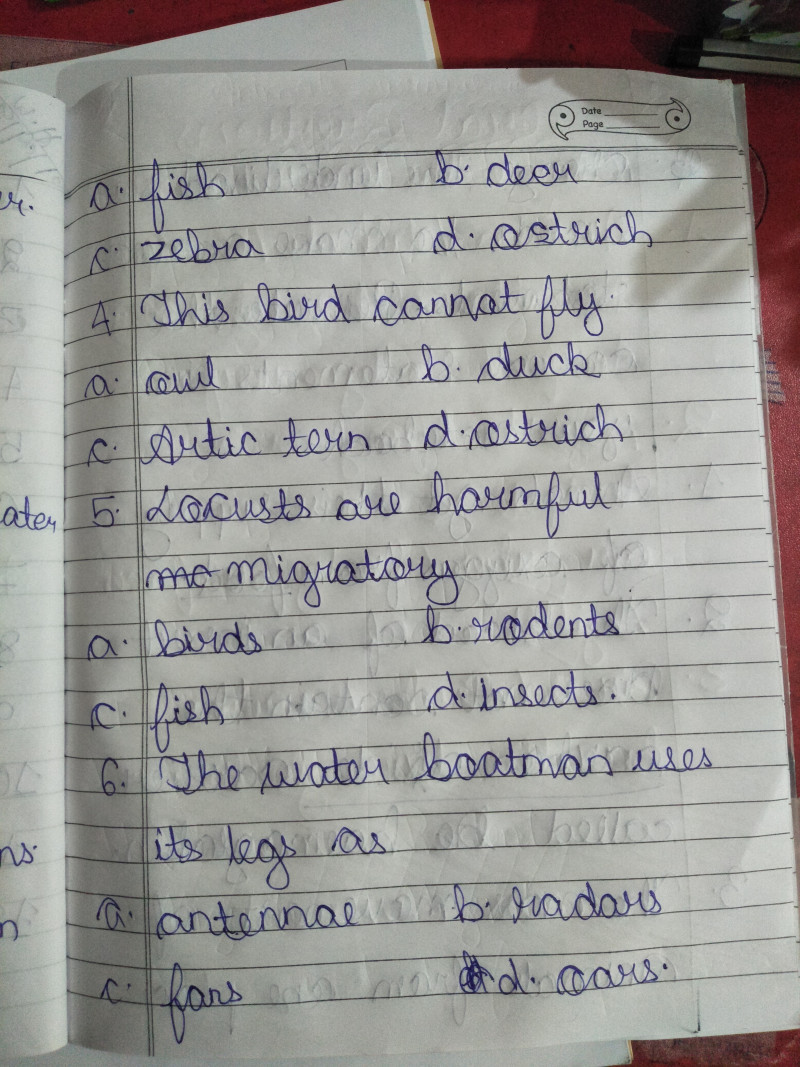 Date
Page
a. fish b. deer
c. zebra d. ostrich
4. This bird cannot fly.
a. owl b. duck
c. Artic tern d. ostrich
5. Locusts are harmful
migratory
a. birds b. rodents
c. fish d. insects.
6. The water boatman uses
its legs as
a. antennae b. radars
c. fans d. oars.
er.
ater
ns.
n